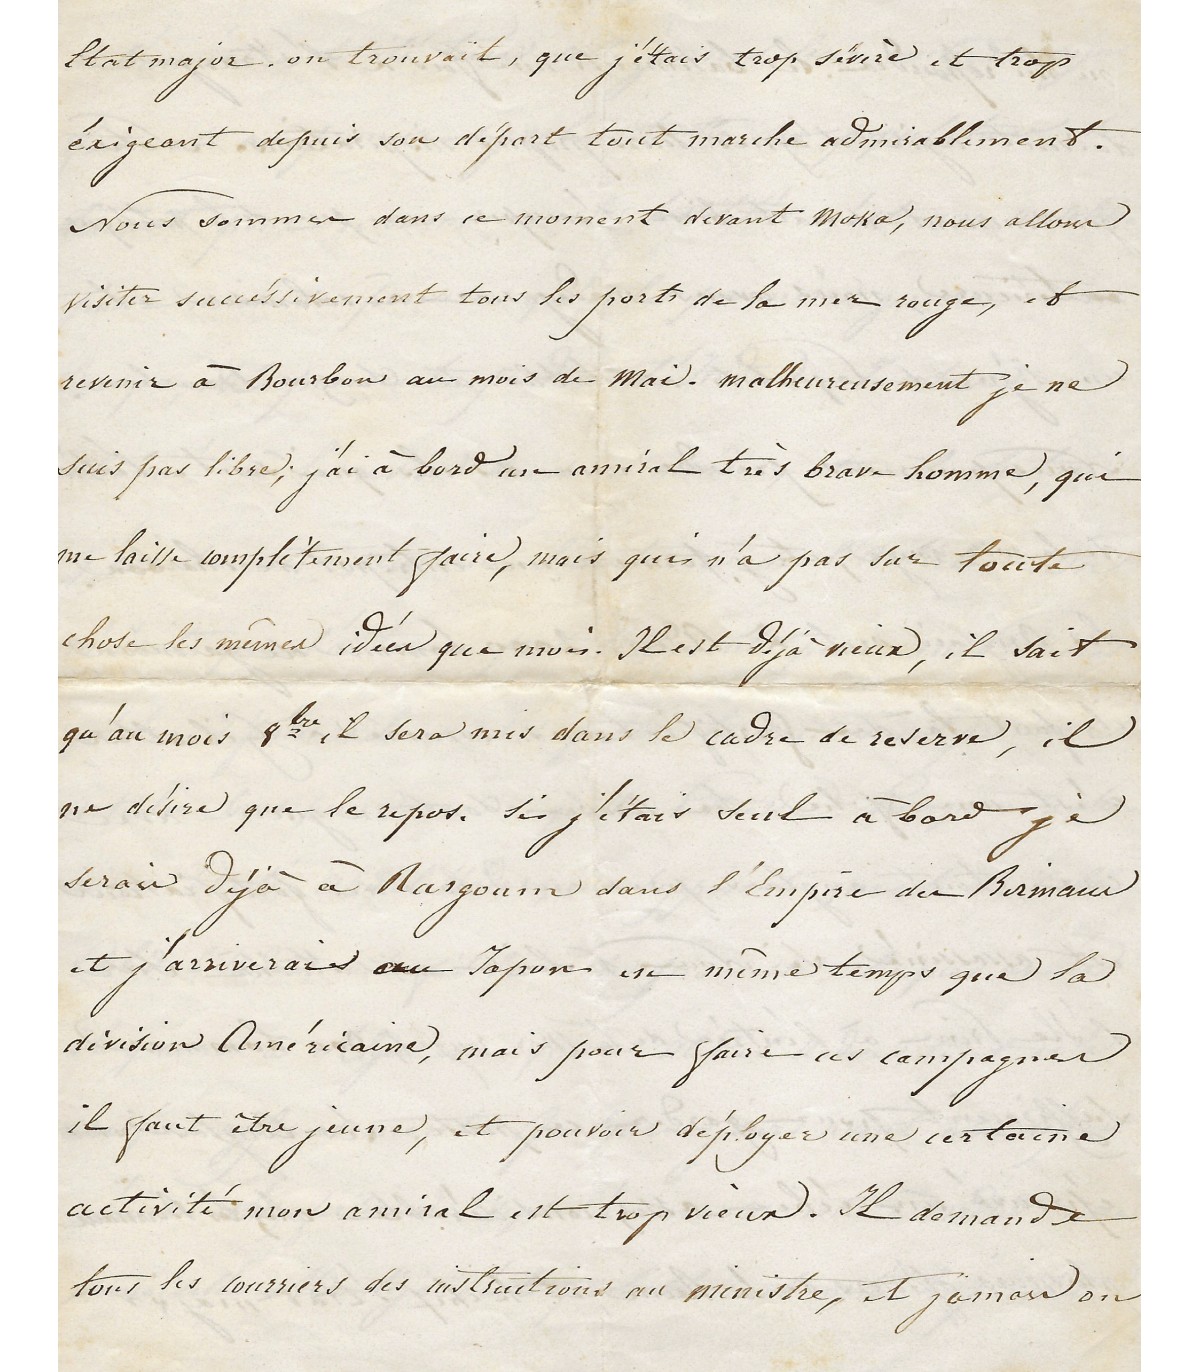 Etat major. on trouvait, que j'étais trop sévère et trop
éxigeant depuis son départ tout marche admirablement.
Nous sommes dans ce moment devant Moka, nous allons
visiter succéssivement tous les ports de la mer rouge, et
revenir à Bourbon au mois de Mai. malheureusement je ne
suis pas libre; j'ai à bord un amiral très brave homme, qui
me laisse complètement faire, mais qui n'a pas sur toute
chose les mêmes idées que moi. Il est déjà vieux, il sait
qu'au mois 8bre il sera mis dans le cadre de reserve, il
ne désire que le repos. si j'étais seul à bord je
serais déjà à Rangoum dans l'Empire des Birmans
et j'arriverais au Japon en même temps que la
division Américaine, mais pour faire ces campagnes
il faut être jeune, et pouvoir déployer une certaine
activité mon amiral est trop vieux. Il demande
tous les courriers des instructions au ministre, et jamais on